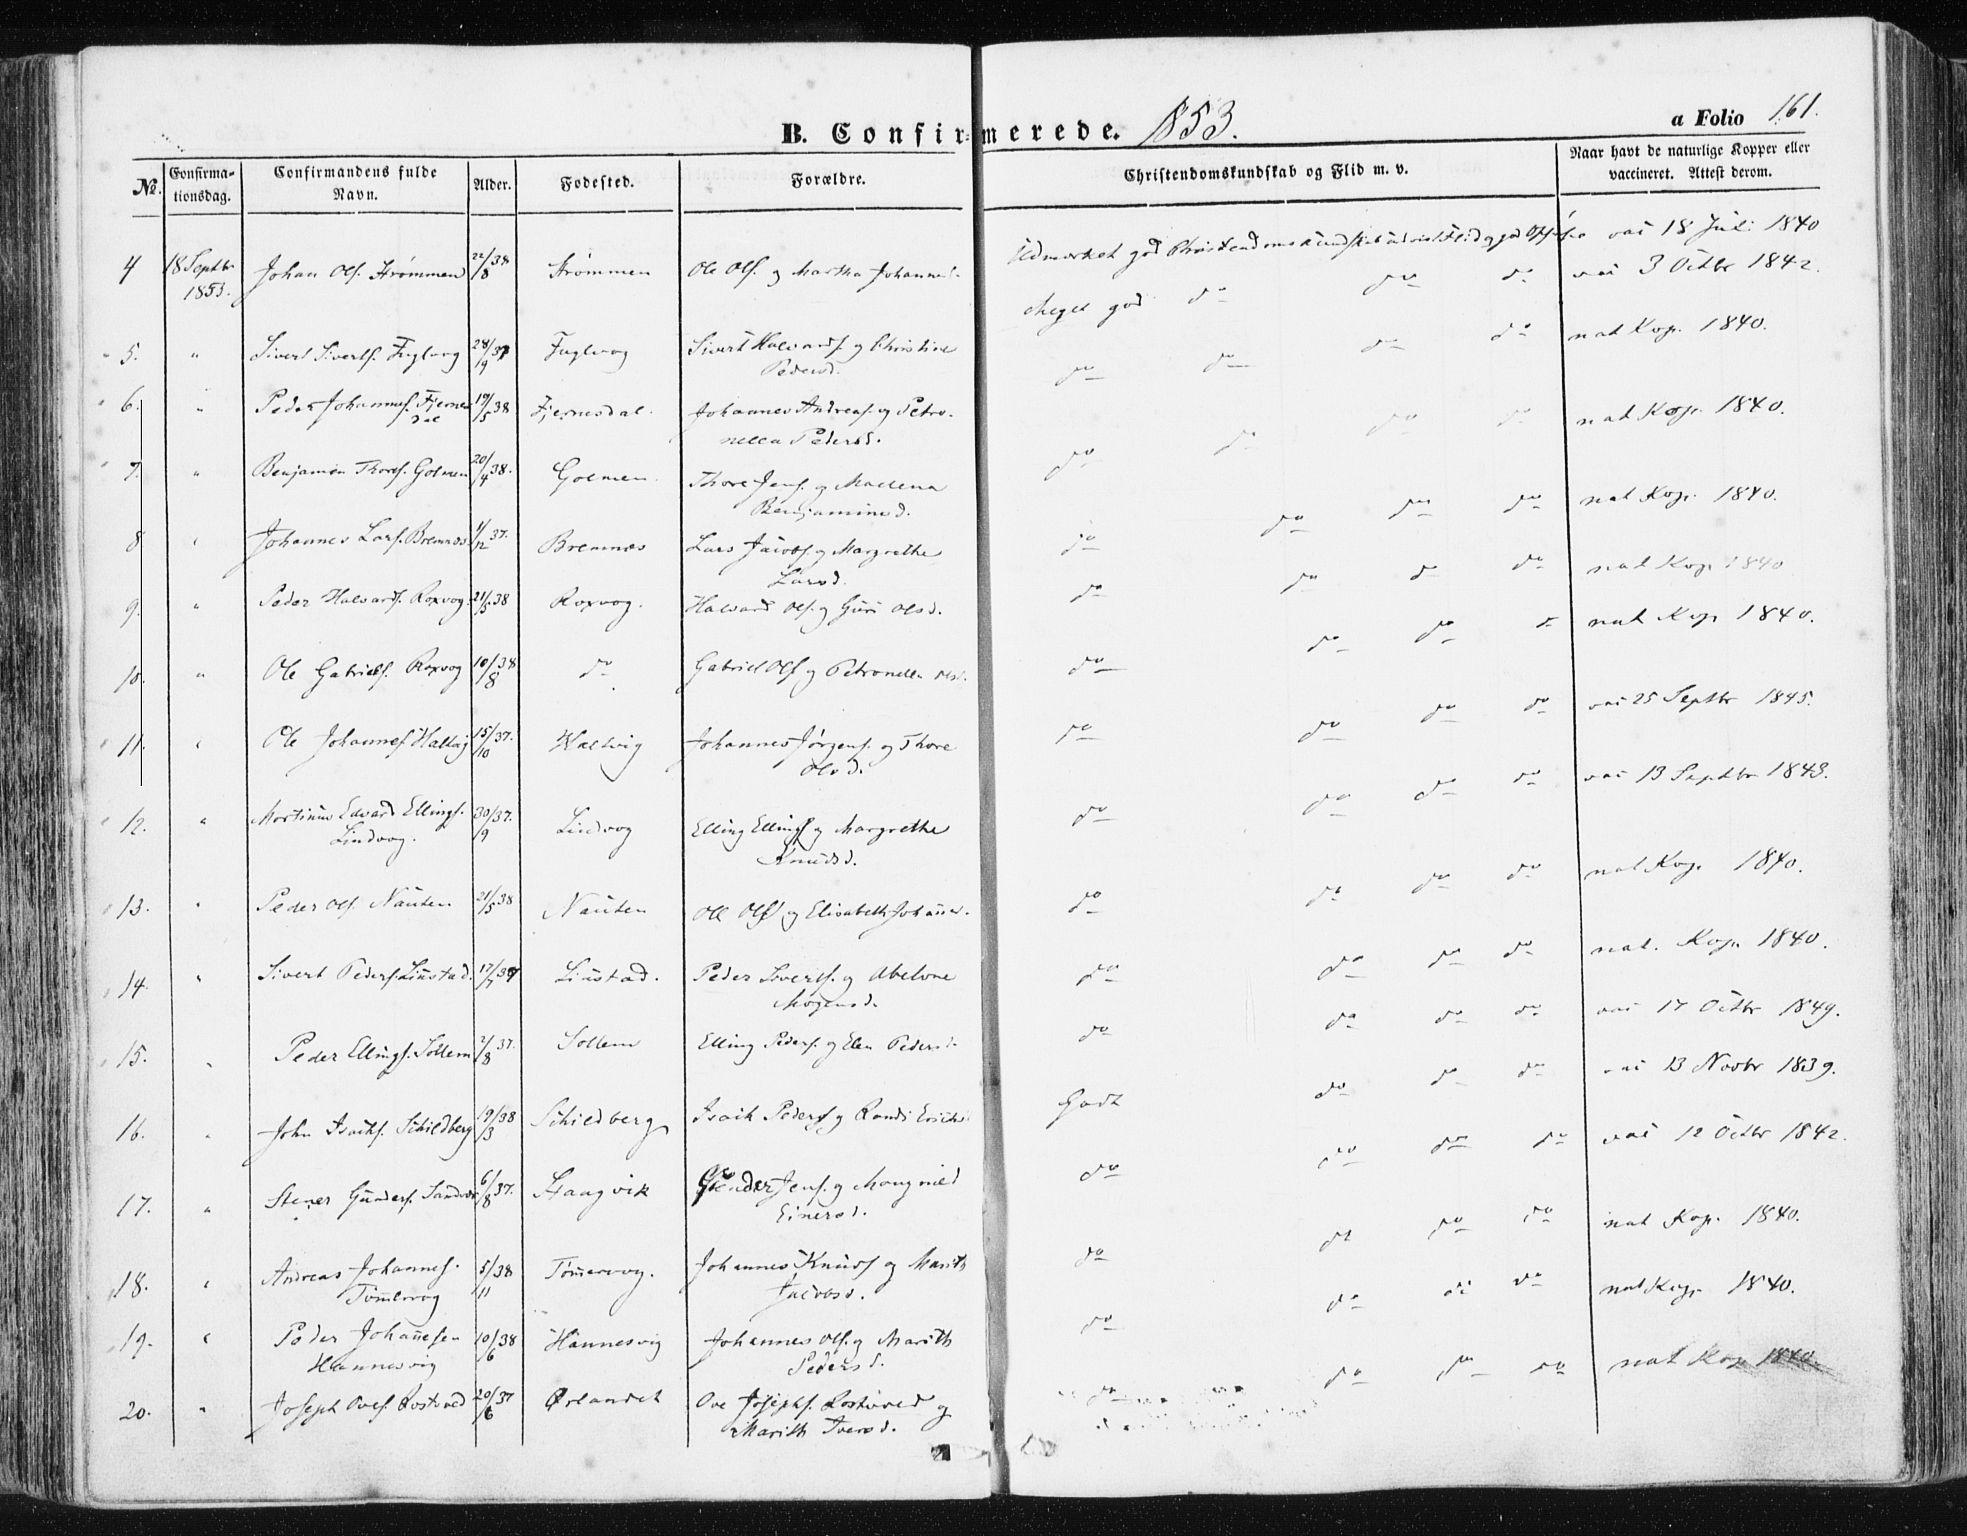 B. Confirmerede. 1853.
a Folio 161.
No.
Confirma-
tionsdag.
Confirmandens fulde
Navn.
Alder.
Fodested.
Forældre.
Christendomskundskab og Flid m. v.
Naar havt de naturlige Kopper eller
vaccineret. Attest derom.
Udmærket god Christendomskundskab udvist Flid og god vac 18 Juli 1840
4 18 Septbr 1853. Johan Ols. Strømmen 22/8 38 Strømmen Ole Ols. og Martha Johannes
Meget god do do do vac 3 Octbr 1842.
5. " Sivert Siverts. Fuglvog 28/9 37 Fuglvog Sivert Halvards. og Christine
Pedersd.
do do do do nat Kop. 1840.
6. " Peder Johannes. Fjernes
dal 19/5 38 Fjernesdal. Johannes Andreas. og Petro-
nella Pedersd.
do do do do nat Kop. 1840.
7. " Benjamin Thores. Golmen 20/4 38. Golmen. Thore Jens. og Mallena
Benjaminsd.
do do do do nat Kop. 1840.
8 " Johannes Lars. Bremnæs 1/12 37. Bremnæs Lars Jacobs. og Margrethe
Larsd.
do do do do nat Kop 1840
9. " Peder Halvards. Roxvog. 21/5 38 Roxvog. Halvard Ols. og Guri Olsd.
do do do do nat Kop 1840.
10. " Ole Gabriels. Roxvog 10/8 38 do Gabriel Ols og Petronella Olsd.
do do do do vac 25 Septbr 1845.
11. " Ole Johannes. 15/10 37. Johannes Jørgens. og Thore
Olsd.
do do do do vac 13 Septbr 1843.
12. " Martinus Edvard Ellings.
Lindvog. 30/9 37. Lindvog Elling Ellings og Margrethe
Knudsd.
do do do do nat Kop. 1840.
13. " Peder Ols. Nausten 21/5 38 Nausten Ole Ols og Elisabeth
do do do do nat. Kop. 1840.
14. " Sivert Peders. Liustad. 17/7 37 Liustad. Peder Siverts. og Abelone
Mogensd.
do do do do vac 17 Octbr 1849.
15. " Peder Ellings. Sollem 2/8 37. Sollem Elling Peders. og Elen Pedersd.
do do do do vac 13 Novbr 1839.
16. " John Isachs. Schildberg 19/3 38 Schildberg Isach Peders og Randi
Godt do do do vac 12 Octbr 1842.
17. " Stener Gunders. 6/8 37. Stangvik Gunder Jens. og Mangnild
Einersd.
do do do do nat Kop. 1840.
18. " Andreas Johannes.
Tømervog 5/11 38 Tømervog. Johannes Knuds og Marith
Jacobsd.
do do do do nat Kop 1840.
19. " Peder Johanesen
Hannesvig 10/6 38 Hannesvig Johannes Ols. og Marith
Pedersd.
do do do do nat Kop 1840.
20. " Joseph Oves. Rostved 20/6 37 Ørlandet Ove Josephs. Rostved og
Marith Iversd.
do